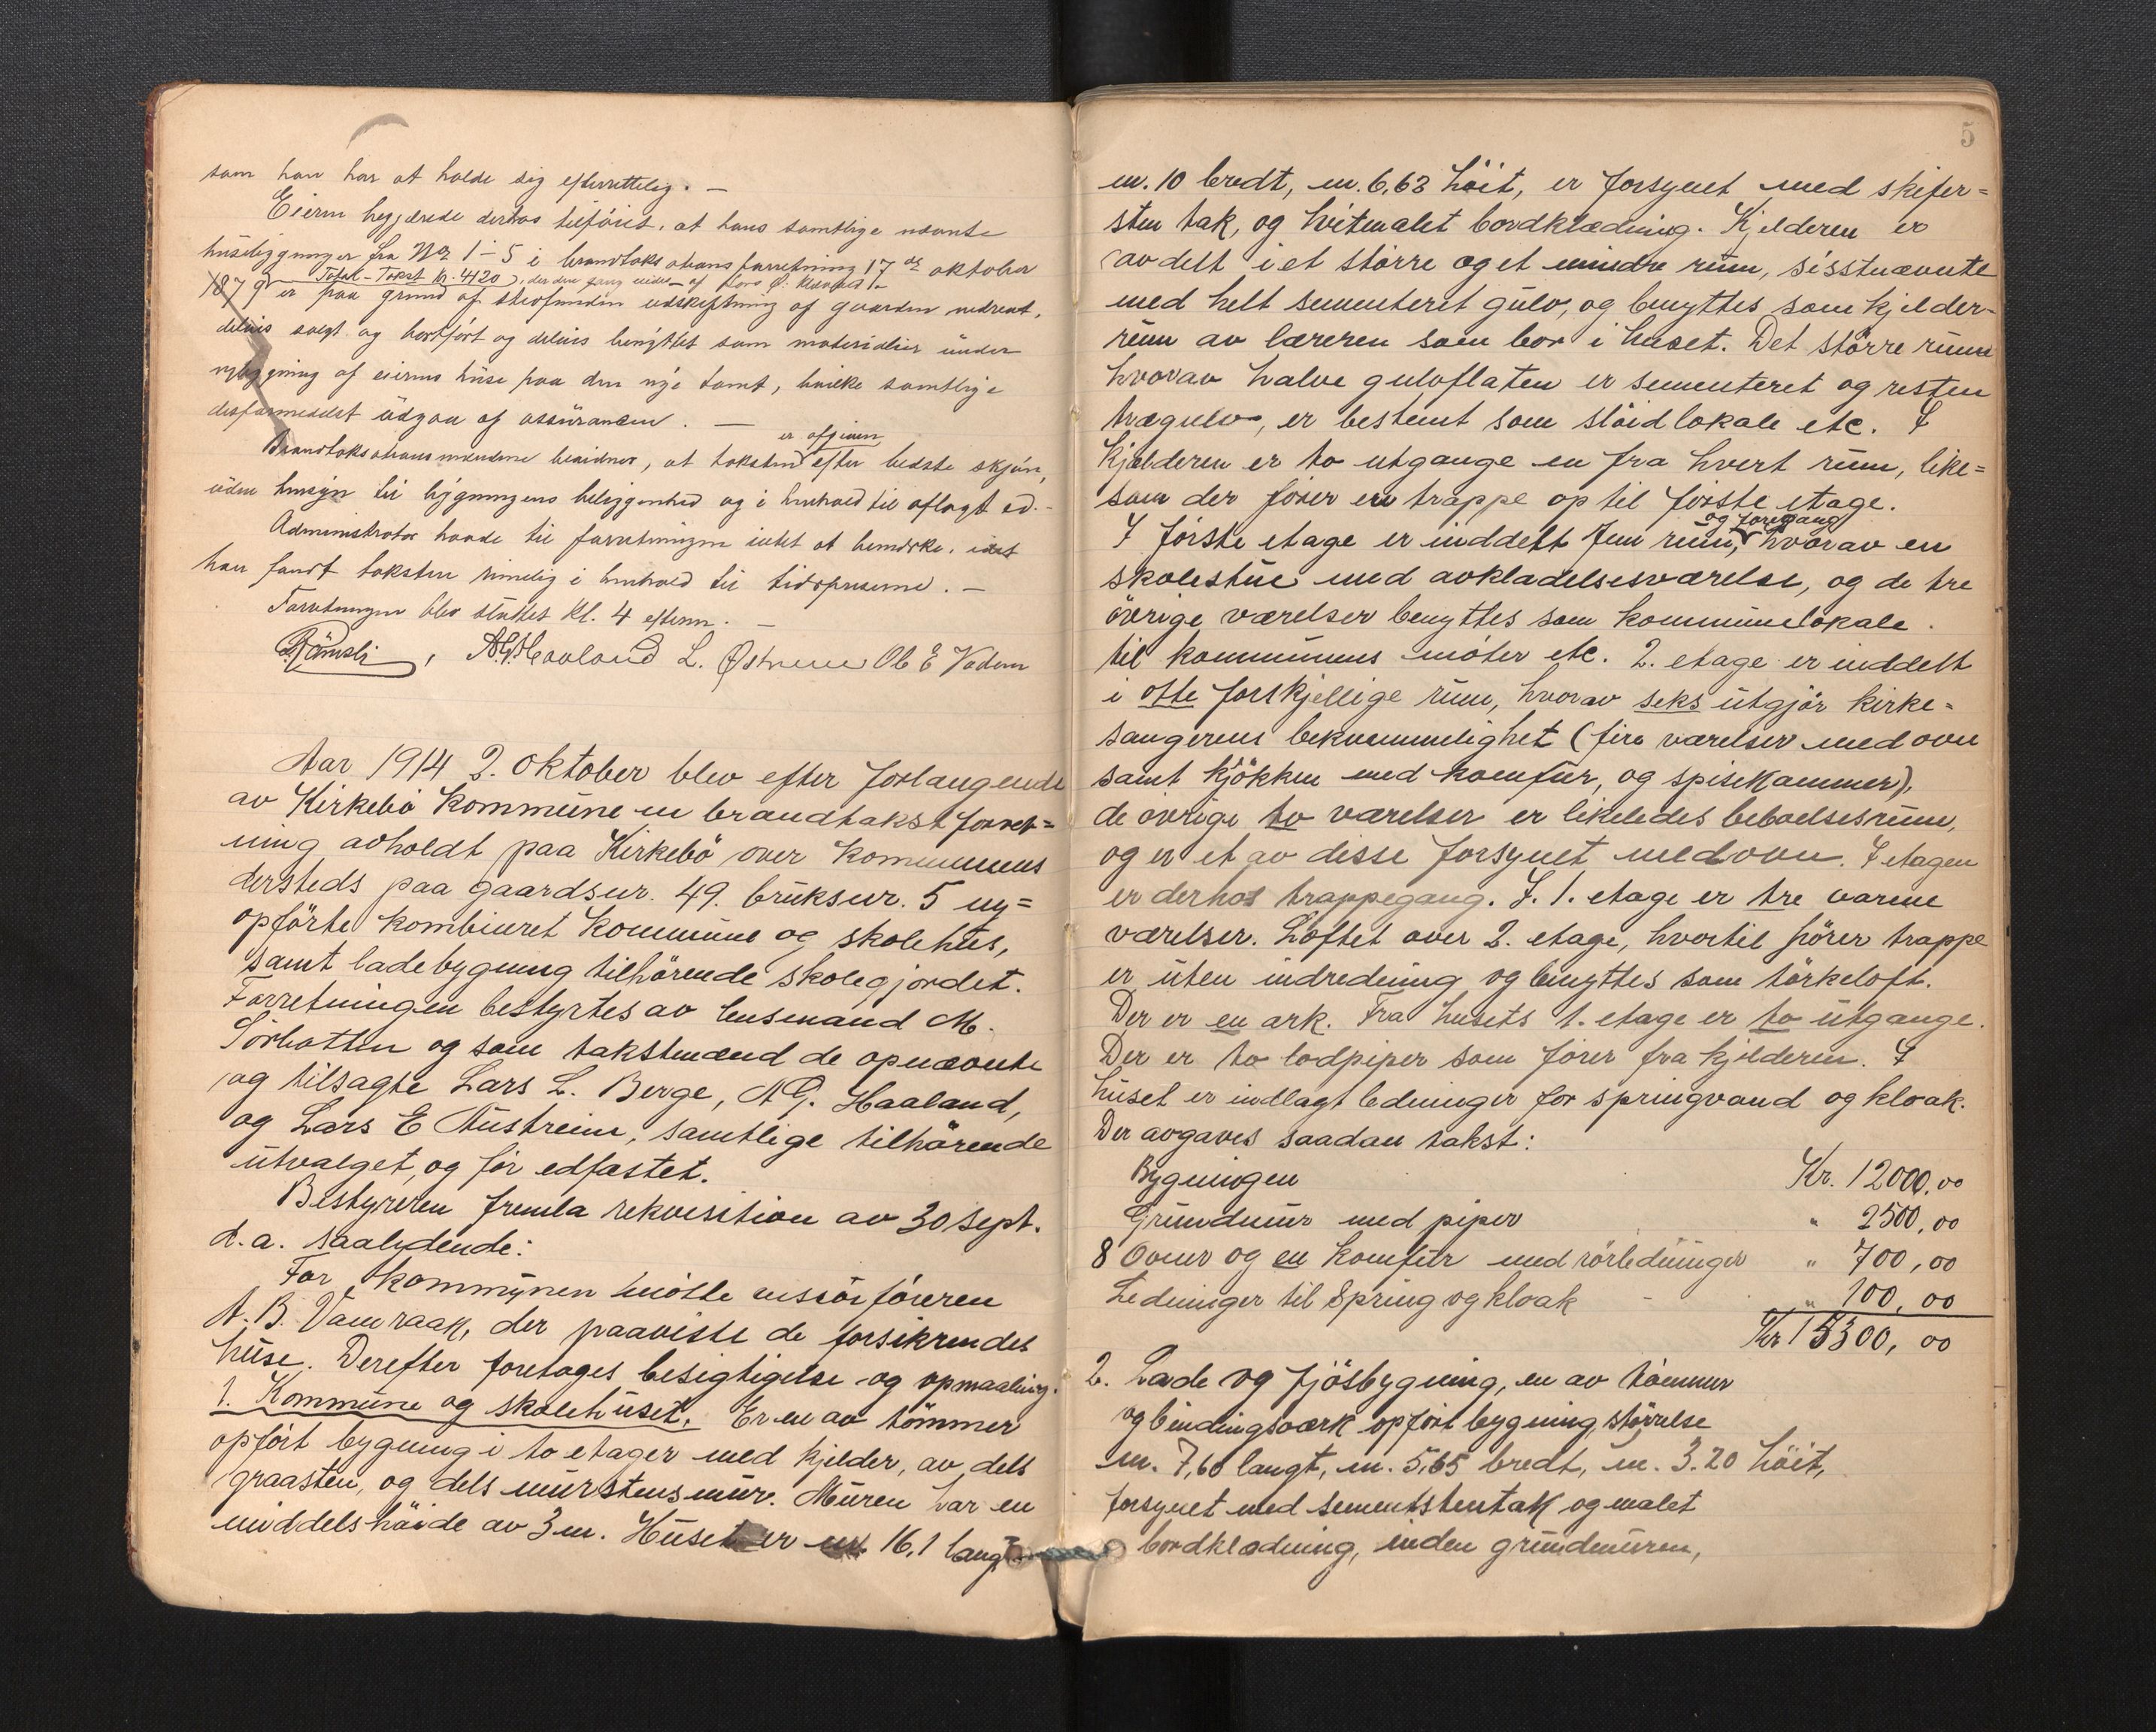 som han har at holde sig efterrettelig. —
Eieren begjærede derhos tilføiet, at hans samtlige nævnte
husebygninger fra No 1-5 i brandtaksationsforretning 17de oktober
Total-Takst kr. 4120
1879 er paa grund af stedfunden udskiftning af gaarden nedrevet,
delvis solgt og bortført og delvis benyttet som materialier under
nybygning af eierens huse paa den nye tomt, hvilke samtlige
desformedelst udgaa af assurancen. —
er afgiven
Brandtaksationsmændene beediger, at taksten efter bedste skjøn,
uden hensyn til bygningens beliggenhed og i henhold til aflagt ed. -
Administrator havde til forretningen intet at bemærke, idet
han fandt taksten rimelig i henhold til tidspriserne. —
Forretningen blev sluttet kl. 4 efterm. —
A.G. Haaland L. Østreim Ol E Vadem
Aar 1914 2. oktober blev efter forlangende
av Kirkebö Kommune en brandtakst forret=
ning avholdt paa Kirkebö over kommunens
dersteds paa gaardsnr. 49. bruksnr. 5 ny=
opförte kombineret kommune og skolehus,
samt ladebygning tilhörende skolegjordet.
Forretningen bestyrtes av lensmand M.
Sörbotten og som takstmænd de opnævnte
og tilsagte Lars L. Berge, A G. Haaland,
og Lars E Austreim, samtlige tilhörende
utvalget, og för edfæstet.
Bestyreren fremla rekvisition av 30 sept.
d.a. saalydende:
For kommunen mötte revisör föreren
A. B. Vamraak, der paaviste de forsikrendes
huse. Derefter foretages besigtigelse og opmaaling.
1. Kommune og skolehuset. Er en av tömmer
opfört bygning i to etager med kjelder, av dels
graasten, og dels murstensmur. Muren har en
middelshöide av 3 m. Huset er m. 16,1 langt
5
m. 10 bredt, m. 6,63 höit, er forsynet med skifer=
sten tak, og hvitmalet bordklædning. Kjelderen er
avdelt i et större og et mindre rum, sisstnævnte
med helt sementeret gulv, og benyttes som kjelder-
rum av læreren som bor i huset. Det större rum
hvorav halve gulvflaten er sementeret og resten
trægulv, er bestemt som slöidlokale etc. I
Kjelderen er to utgange en fra hvert rum, like=
som der förer en trappe op til förste etage.
og foregang
I förste etage er inddelt fem rum, hvorav en
skolestue med avklædelsesværelse, og de tre
övrige værelser benyttes som kommunelokale.
til kommunens möter etc. 2. etage er inddelt
i otte forskjellige rum, hvorav seks utgjör kirke=
sangerens bekvemmelighet (fire værelser med ovn
samt kjökken med komfur, og spisekammer),
de övrige to værelser er likeledes beboelsesrum,
og er et av disse forsynet med ovn. I etagen
er derhos trappegang. I. 1. etage er tre varme
værelser. Loftet over 2. etage, hvortil förer trappe
er uten indredning og benyttes som törkeloft.
Der er en ark. Fra husets 1. etage er to utgange.
Der er to lodpiper som förer fra kjelderen. I
huset er indlagt ledninger for springvand og kloak.
Der avgaves saadan takst:
Bygningen Kr. 12000,00
Grundmur med piper " 2500,00
8 Ovner og en komfur med rörledninger " 700,00
Ledninger til Spring og kloak - " 100,00
Kr 15300,00
2. Lade og fjösbygning, en av tömmer
og bindingsværk opfört bygning, störrelse
m. 7,60 langt, m. 5,65 bredt, m. 3.20 höit,
forsynet med sementstentak og malet
bordklædning, inden grundmuren,